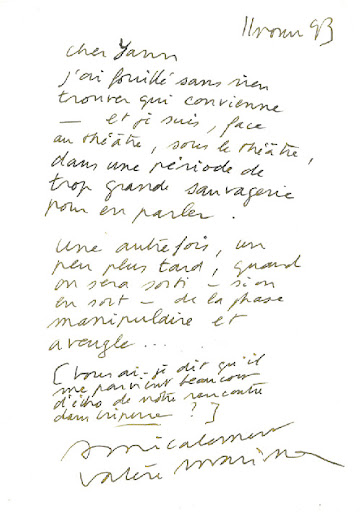 11 novem 93
cher Yann
j'ai fouillé sans rien
trouver qui convienne
— et je suis, face
au théâtre, sous le théâtre,
dans une période de
trop grande sauvagerie
pour en parler.
Une autre fois, un
peu plus tard, quand
on sera sorti – si on
en sort – de la phase
manipulaire et
aveugle ....
[vous ai-je dit qu'il
me parvient beaucoup
d'écho de notre rencontre
dans ?]
amicalement
Valère